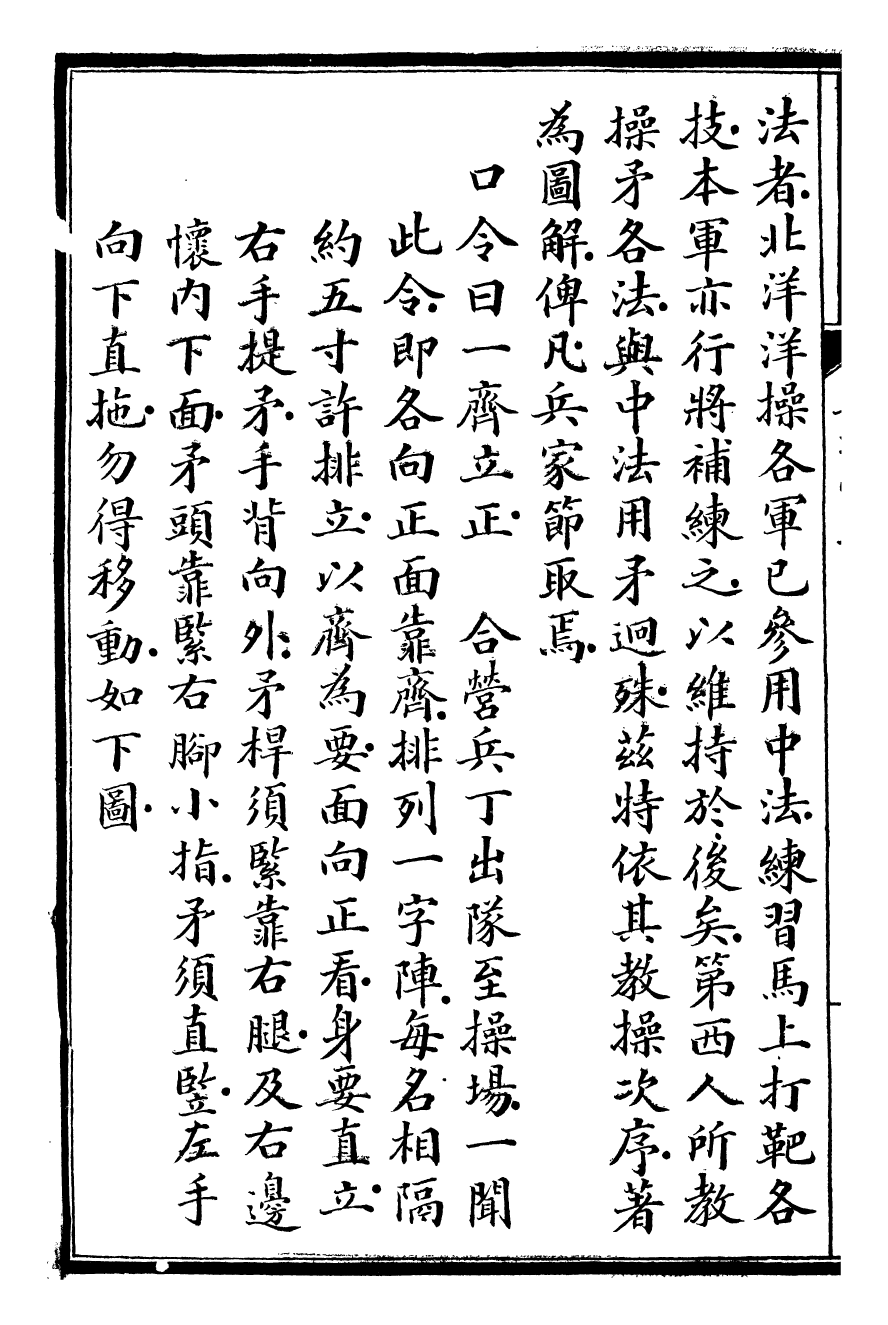 法者.北洋洋操各軍已參用中法.練習馬上打靶各
技.本軍亦行將補練之.以維持於後矣.第西人所教
操矛各法.與中法用矛迥殊.茲特依其教操次序.著
為圖解.俾凡兵家節取焉.
口令曰一齊立正.　合營兵丁出隊至操場.一聞
此令.即各向正面靠齊.排列一字陣.每名相隔
約五寸許排立.以齊為要.面向正看.身要直立.
右手提矛.手背向外.矛桿須緊靠右腿.及右邊
懷內下面.矛頭靠緊右腳小指.矛須直豎.左手
向下直拖.勿得移動.如下圖.